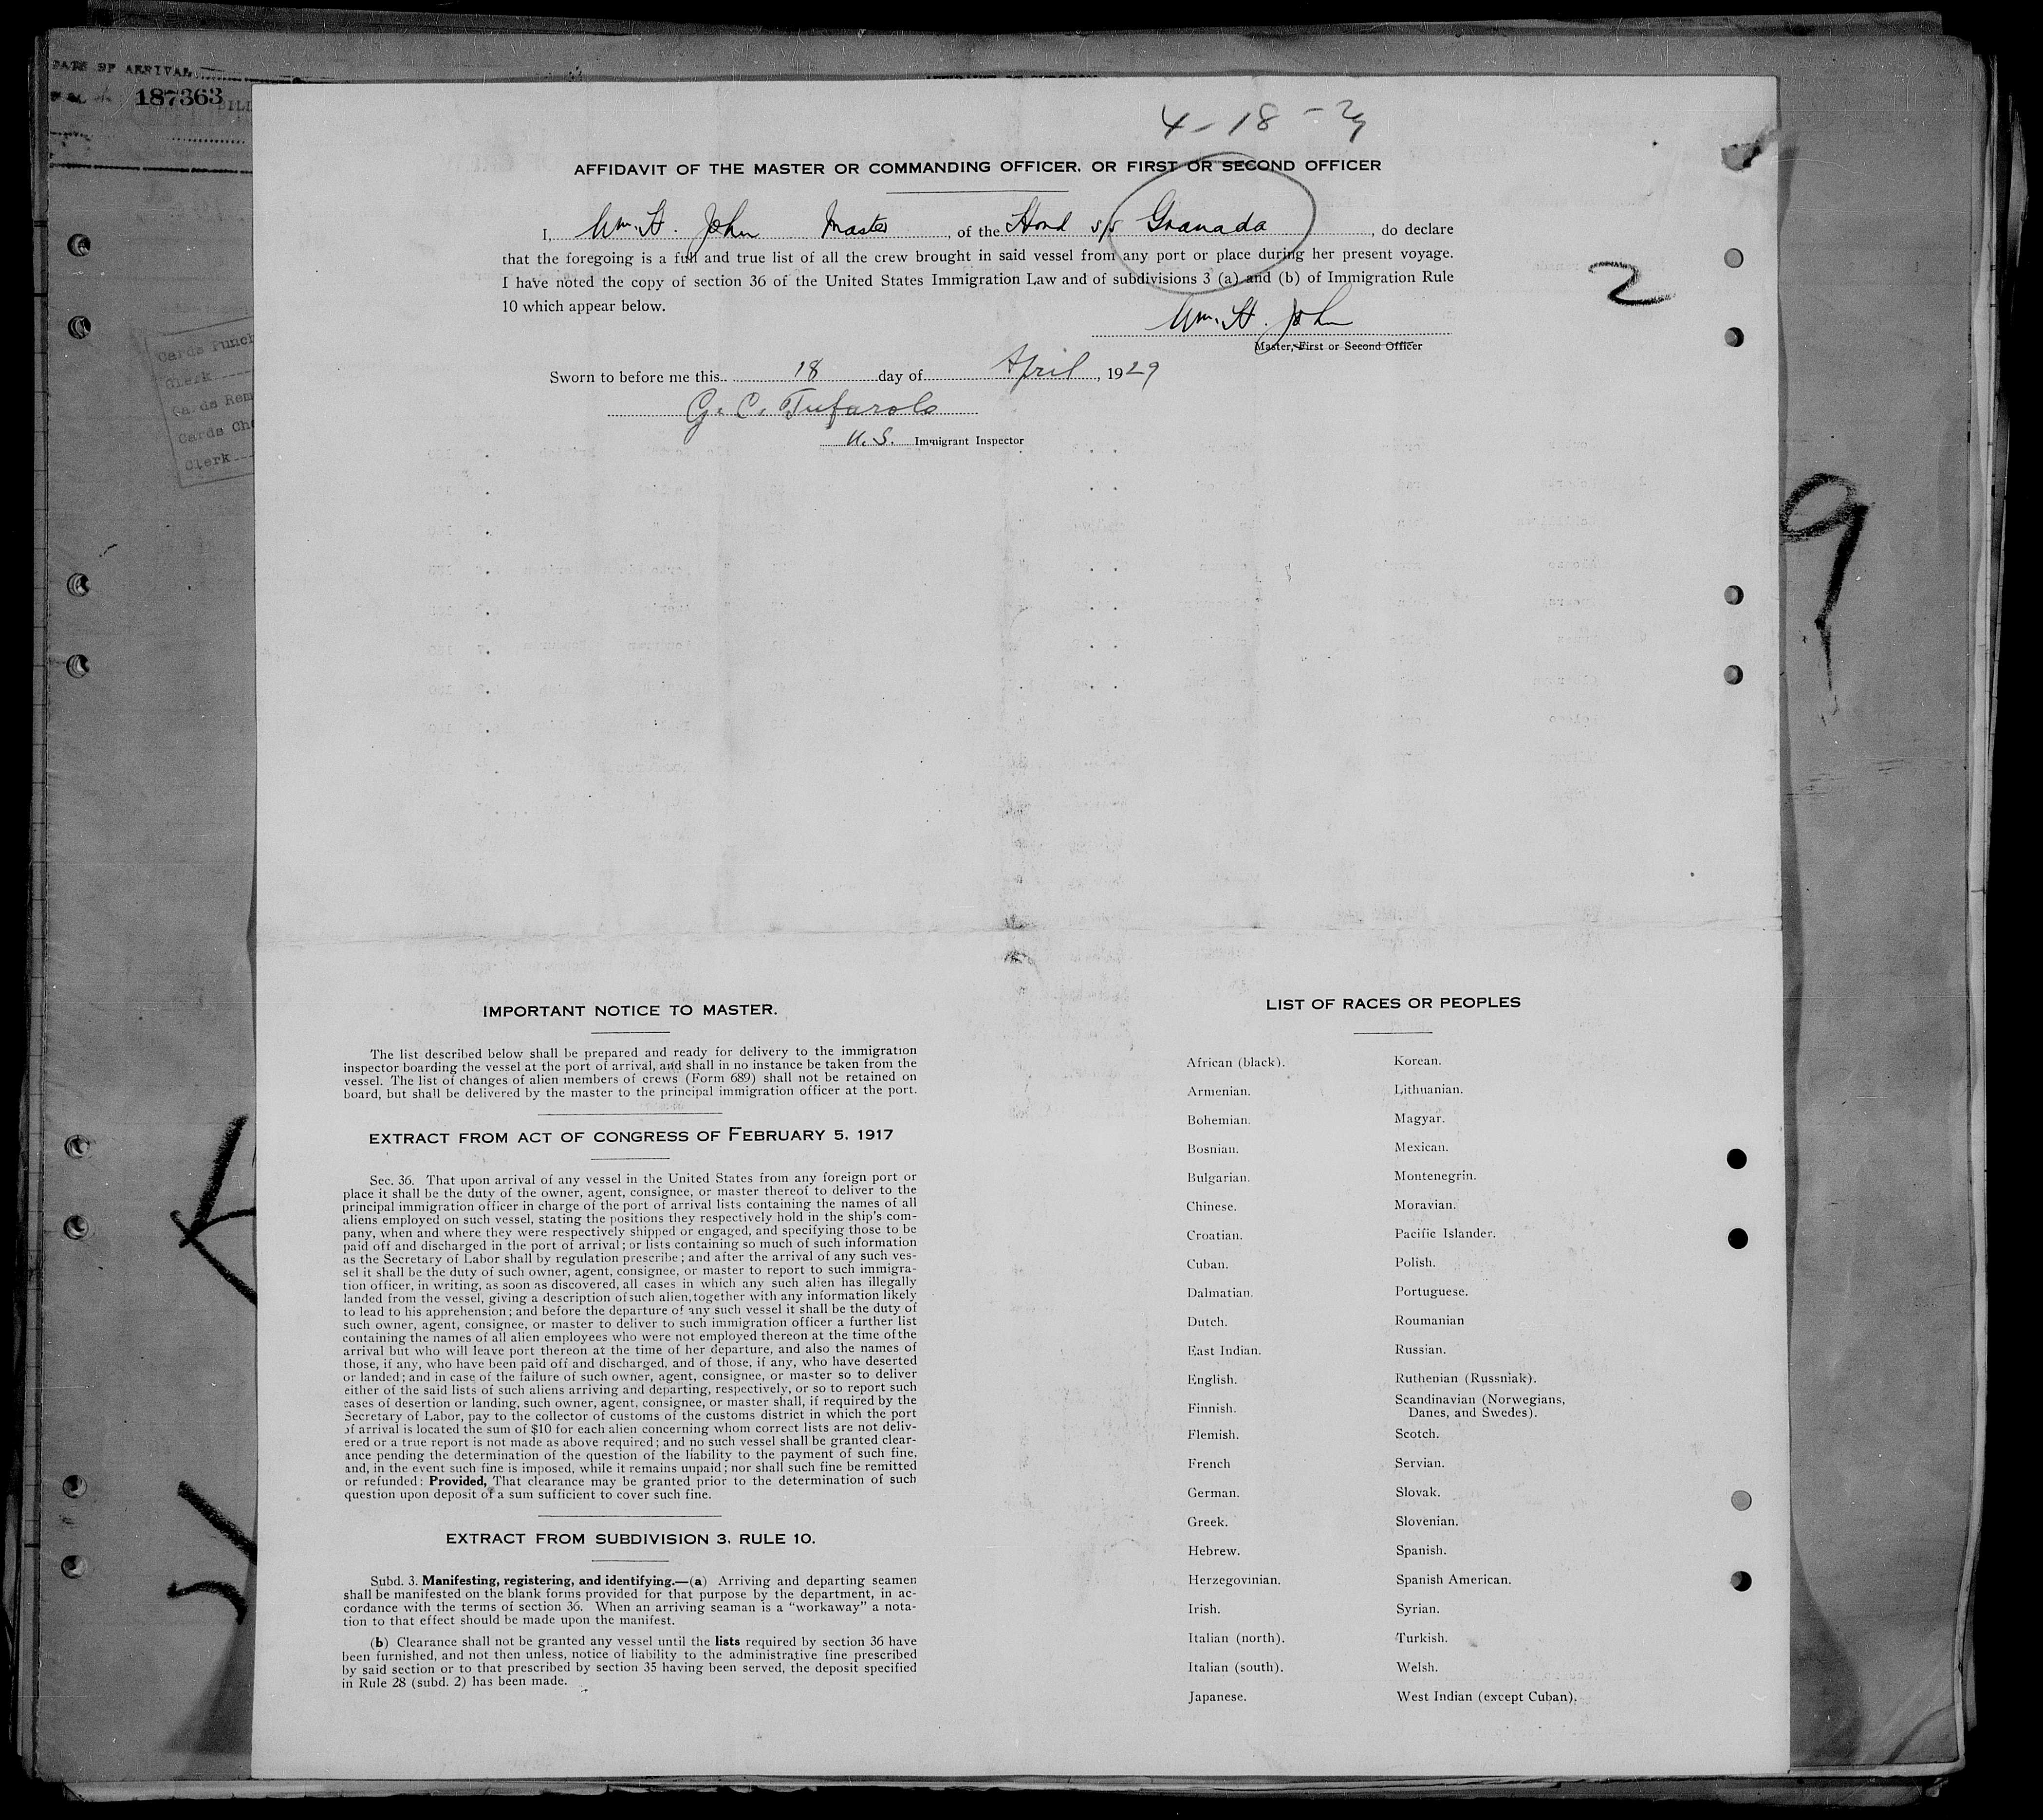 DATE OF ARRIVAL
187363
4-18-29
AFFIDAVIT OF THE MASTER OR COMMANDING OFFICER, OR FIRST OR SECOND OFFICER
I, Wm. H. John Master, of the Hond s/s Granada, do declare
that the foregoing is a full and true list of all the crew brought in said vessel from any port or place during her present voyage.
I have noted the copy of section 36 of the United States Immigration Law and of subdivisions 3 (a) and (b) of Immigration Rule
10 which appear below.
2
Wm. H. John
Master, First or Second Officer
Sworn to before me this 18 day of April, 1929
G. C. Tufarolo
U.S. Immigrant Inspector
Cards Punch
Clerk
Cards Rem
Cards Che
Clerk
9
IMPORTANT NOTICE TO MASTER.
The list described below shall be prepared and ready for delivery to the immigration
inspector boarding the vessel at the port of arrival, and shall in no instance be taken from the
vessel. The list of changes of alien members of crews (Form 689) shall not be retained on
board, but shall be delivered by the master to the principal immigration officer at the port.
EXTRACT FROM ACT OF CONGRESS OF FEBRUARY 5, 1917
Sec. 36. That upon arrival of any vessel in the United States from any foreign port or
place it shall be the duty of the owner, agent, consignee, or master thereof to deliver to the
principal immigration officer in charge of the port of arrival lists containing the names of all
aliens employed on such vessel, stating the positions they respectively hold in the ship's com-
pany, when and where they were respectively shipped or engaged, and specifying those to be
paid off and discharged in the port of arrival; or lists containing so much of such information
as the Secretary of Labor shall by regulation prescribe; and after the arrival of any such ves-
sel it shall be the duty of such owner, agent, consignee, or master to report to such immigra-
tion officer, in writing, as soon as discovered, all cases in which any such alien has illegally
landed from the vessel, giving a description of such alien, together with any information likely
to lead to his apprehension; and before the departure of any such vessel it shall be the duty of
such owner, agent, consignee, or master to deliver to such immigration officer a further list
containing the names of all alien employees who were not employed thereon at the time of the
arrival but who will leave port thereon at the time of her departure, and also the names of
those, if any, who have been paid off and discharged, and of those, if any, who have deserted
or landed; and in case of the failure of such owner, agent, consignee, or master so to deliver
either of the said lists of such aliens arriving and departing, respectively, or so to report such
cases of desertion or landing, such owner, agent, consignee, or master shall, if required by the
Secretary of Labor, pay to the collector of customs of the customs district in which the port
of arrival is located the sum of $10 for each alien concerning whom correct lists are not deliv-
ered or a true report is not made as above required; and no such vessel shall be granted clear-
ance pending the determination of the question of the liability to the payment of such fine,
and, in the event such fine is imposed, while it remains unpaid; nor shall such fine be remitted
or refunded: Provided, That clearance may be granted prior to the determination of such
question upon deposit of a sum sufficient to cover such fine.
EXTRACT FROM SUBDIVISION 3, RULE 10.
Subd. 3. Manifesting, registering, and identifying.—(a) Arriving and departing seamen
shall be manifested on the blank forms provided for that purpose by the department, in ac-
cordance with the terms of section 36. When an arriving seaman is a "workaway" a nota-
tion to that effect should be made upon the manifest.
(b) Clearance shall not be granted any vessel until the lists required by section 36 have
been furnished, and not then unless, notice of liability to the administrative fine prescribed
by said section or to that prescribed by section 35 having been served, the deposit specified
in Rule 28 (subd. 2) has been made.
LIST OF RACES OR PEOPLES
African (black).
Armenian.
Bohemian.
Bosnian.
Bulgarian.
Chinese.
Croatian.
Cuban.
Dalmatian.
Dutch.
East Indian.
English.
Finnish.
Flemish.
French
German.
Greek.
Hebrew.
Herzegovinian.
Irish.
Italian (north).
Italian (south).
Japanese.
Korean.
Lithuanian.
Magyar.
Mexican.
Montenegrin.
Moravian.
Pacific Islander.
Polish.
Portuguese.
Roumanian
Russian.
Ruthenian (Russniak).
Scandinavian (Norwegians,
Danes, and Swedes).
Scotch.
Servian.
Slovak.
Slovenian.
Spanish.
Spanish American.
Syrian.
Turkish.
Welsh.
West Indian (except Cuban).